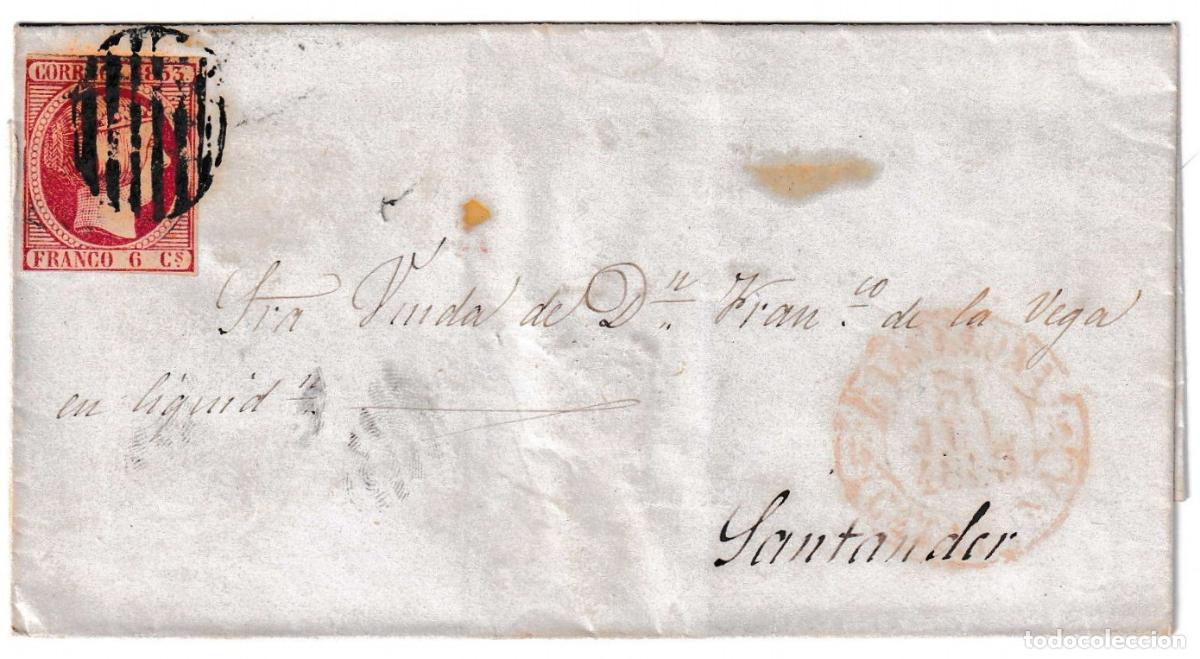 CORREOS 1853.
FRANCO 6 Cs
Sra Viuda de Dn. Franco. de la Vega
en liquidn.
Santander
todocoleccion